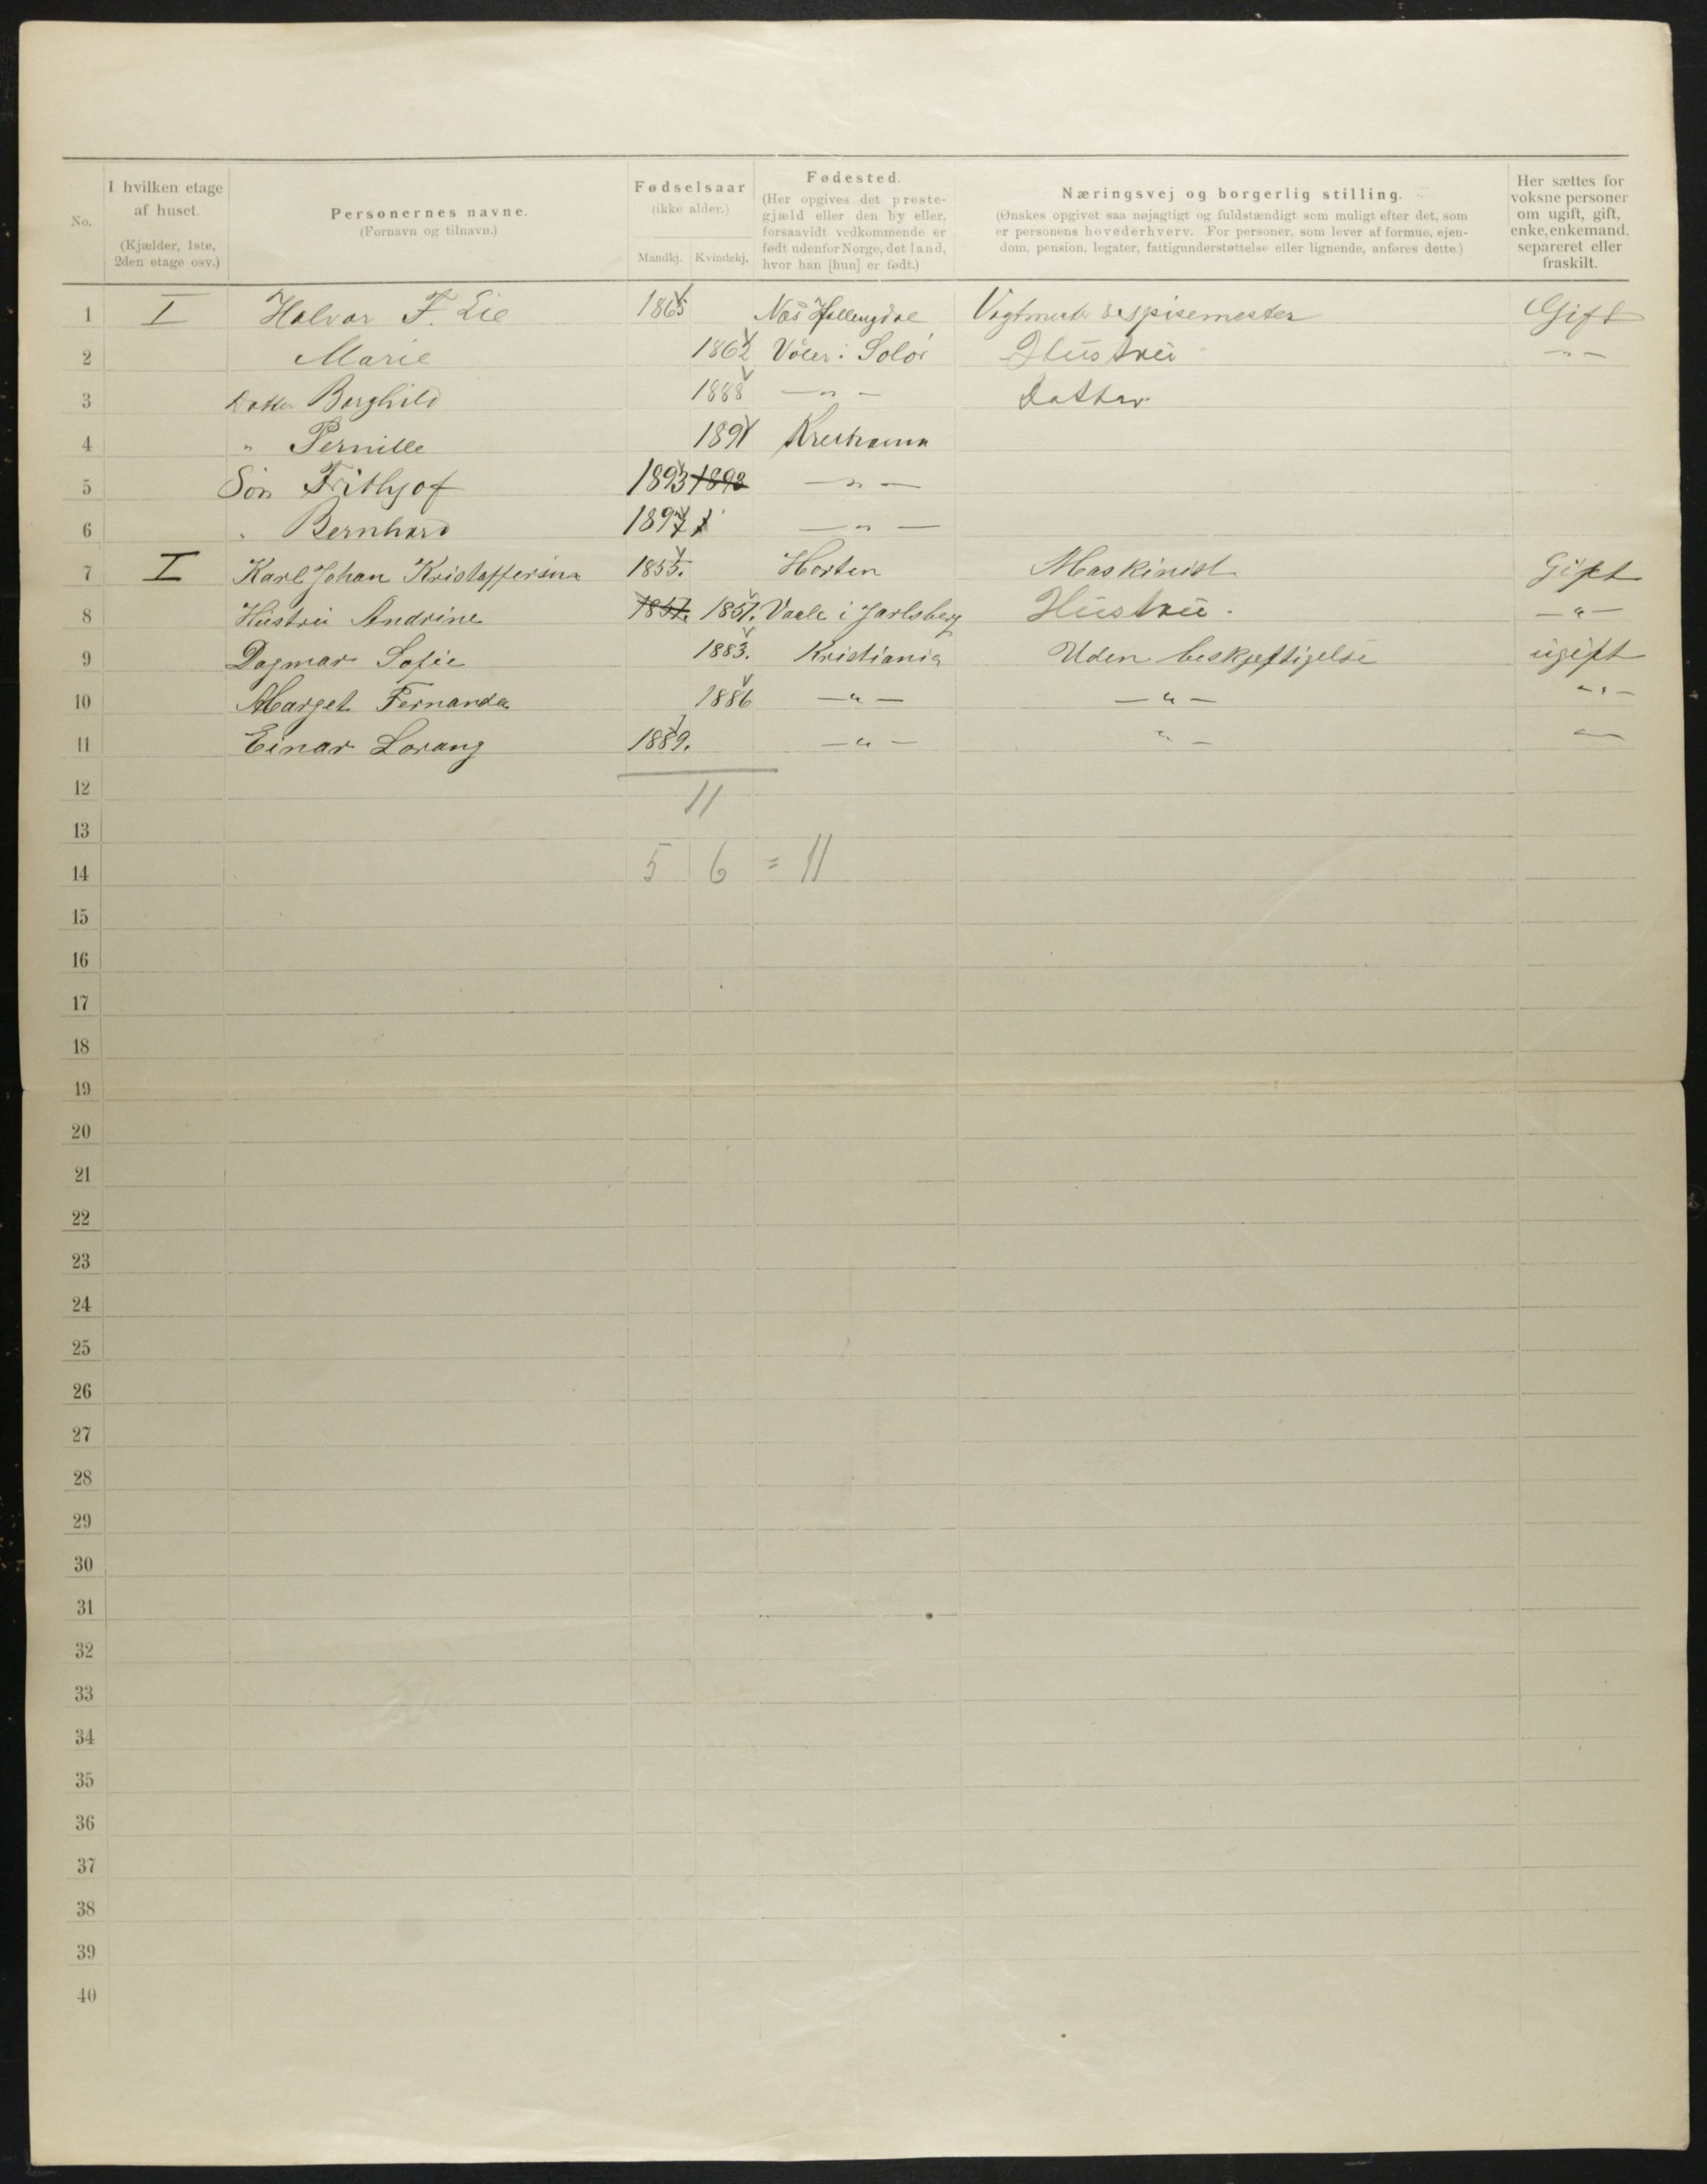 No.
I hvilken etage af huset. (Kjælder, 1ste, 2den etage osv.)
Personernes navne. (Fornavn og tilnavn.)
Fødselsaar (ikke alder.) Mandkj. Kvindekj.
Fødested. (Her opgives det prestegjæld eller den by eller, forsaavidt vedkommende er født udenfor Norge, det land, hvor han [hun] er født.)
Næringsvej og borgerlig stilling. (Ønskes opgivet saa nøjagtigt og fuldstændigt som muligt efter det, som er personens hovederhverv. For personer, som lever af formue, ejendom, pension, legater, fattigunderstøttelse eller lignende, anføres dette.)
Her sættes for voksne personer om ugift, gift, enke, enkemand, separeret eller fraskilt.
1 I Halvor F. Lie 1865 Næs Hallingdal spisemester Gift
2 Marie 1862 Våler i Solör Hustru — " —
3 Datter Borghild 1888 — " — Datter
4 " Pernille 1891
5 Sön Frithjof 1893 1893 — " —
6 " Bernhard 1897 — " —
7 I Karl Johan Kristoffersen 1855. Horten Maskinist Gift
8 Hustru Andrine 1851. 1851. Vaale i Jarlsberg Hustru. — " —
9 Dagmar Sofie 1883. Kristiania Uden beskjeftigelse ugift
10 Marget Fernanda 1886 — " — — " — " —
11 Einar Lorang 1889. — " — " — " —
12 11
13
14 5 6 = 11
15
16
17
18
19
20
21
22
23
24
25
26
27
28
29
30
31
32
33
34
35
36
37
38
39
40